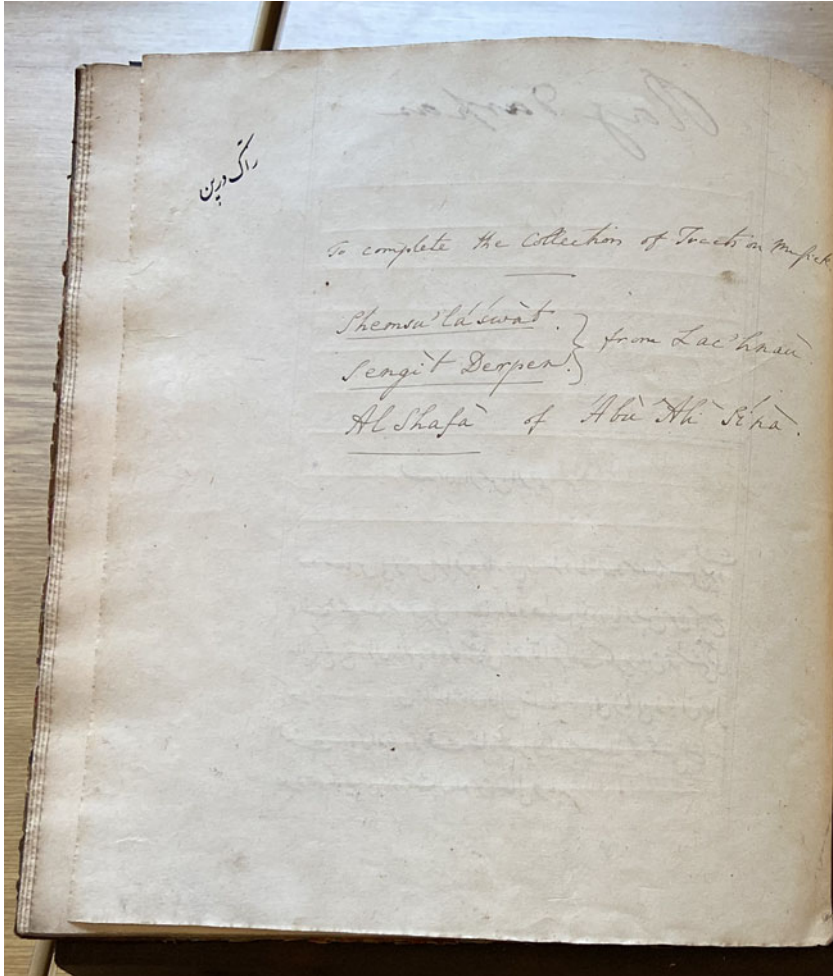 راگ درپن
To complete the Collection of Tracts on Musick
Shemsu'lá'swàt. } from Lac'hnau.
Sengìt Derpen. }
Al Shafà of 'Abù 'Alì Sínà.